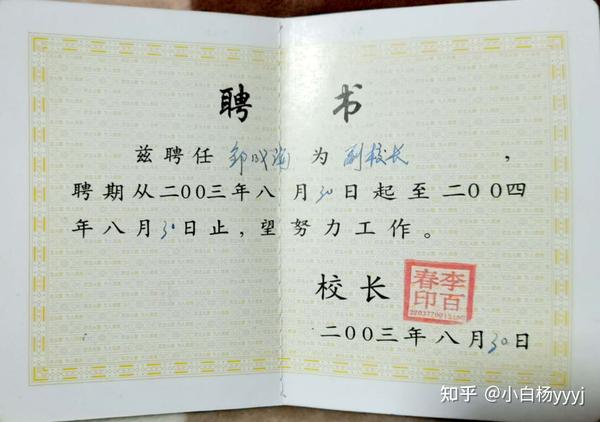 聘 书
兹聘任 邹成海 为 副校长 ,
聘期从二OO三年八月30日起至二OO四
年八月30日止,望努力工作。
校长
李百春印
二OO三年八月30日
知乎 @小白杨yyyj